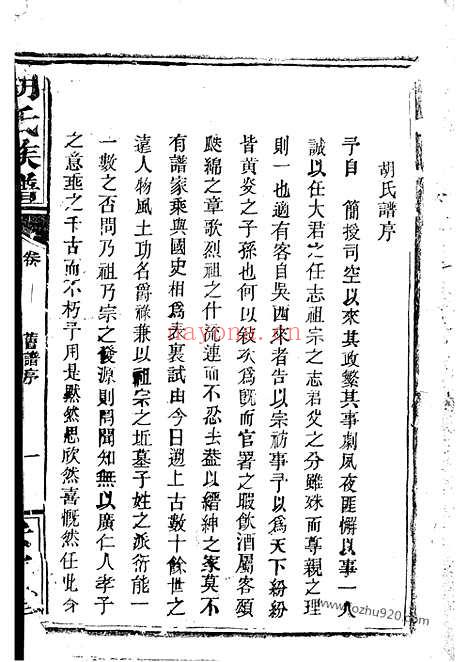 胡氏譜序
予自　簡授司空以來其政繁其事劇夙夜匪懈以事一人
誠以任大君之任志祖宗之志君父之分雖殊而尊親之理
則一也適有客自吳西來者告以宗祊事予以為天下紛紛
皆黃炎之子孫也何以
為既而官署之暇飲酒屬客頌
綿之章歌烈祖之什流連而不忍去蓋以縉紳之家莫不
有譜家乘與國史相為表裏試由今日遡上古數十餘世之
遠人物風土功名爵祿兼以祖宗之坵墓子姓之派衍能一
一數之否問乃祖乃宗之發源則罔聞知無以廣仁人孝子
之意垂之千古而不朽予用是黙然思欣然喜慨然任此今
胡氏族譜
卷
舊譜序
一
dayong.cn
www.rozhu920.com